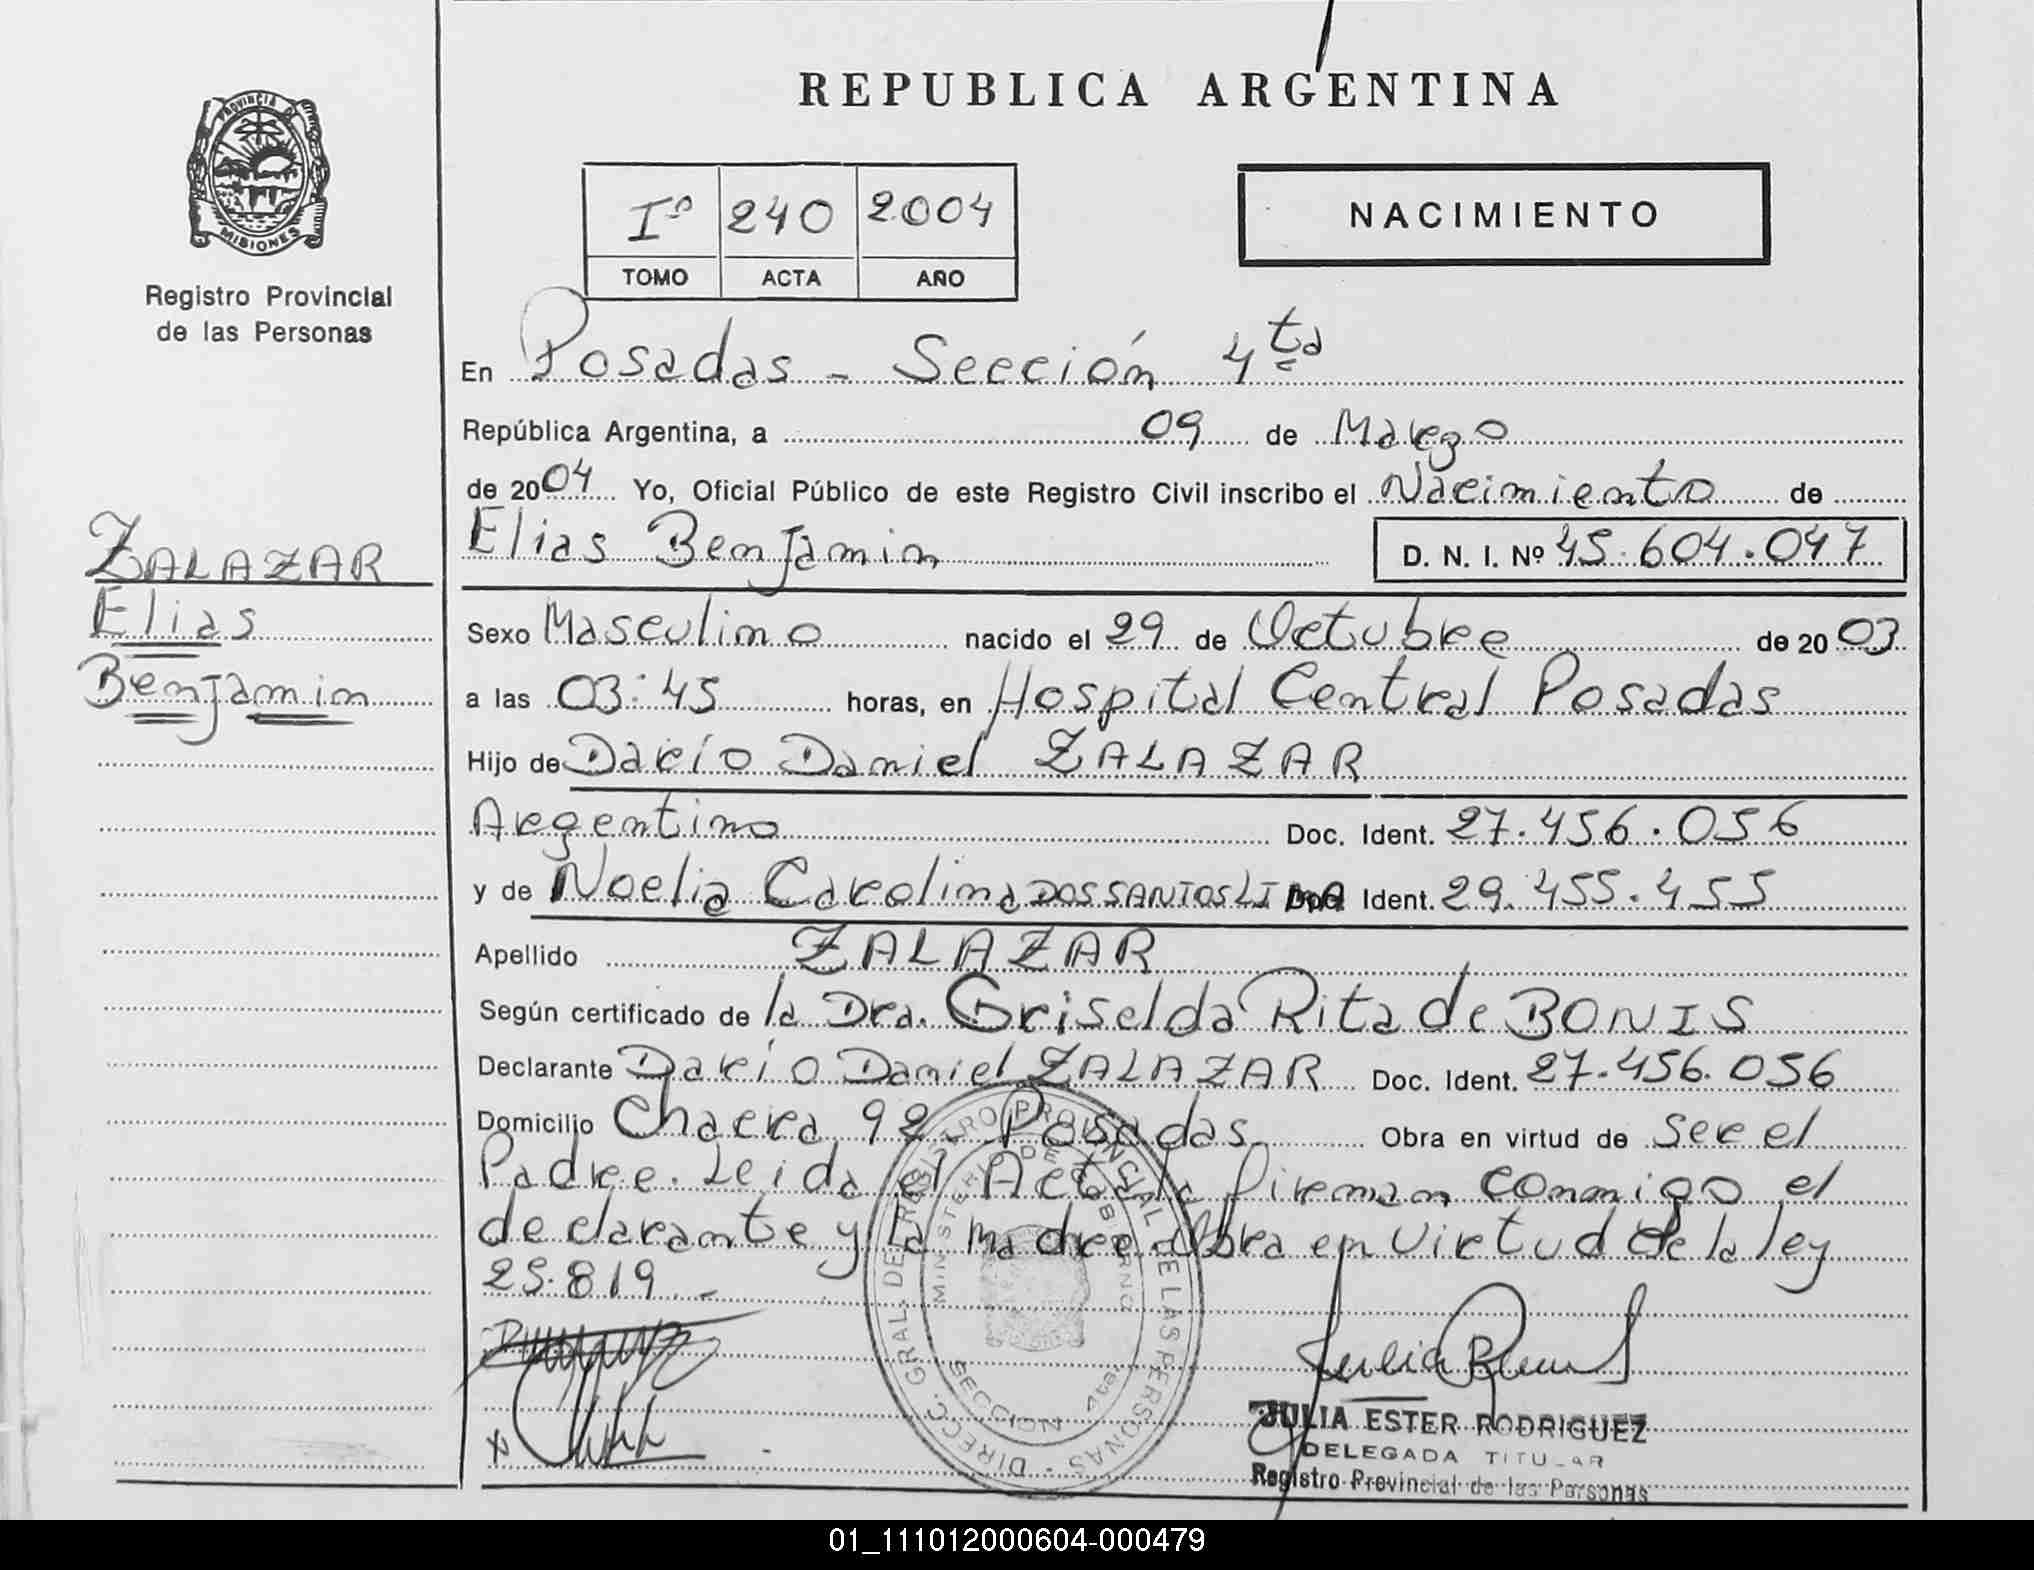 REPUBLICA ARGENTINA
PROVINCIA DE
MISIONES
Registro Provincial
de las Personas
Iº 240 2004
TOMO ACTA AÑO
NACIMIENTO
En Posadas - Sección 4ta
República Argentina, a 09 de Marzo
de 2004 Yo, Oficial Público de este Registro Civil inscribo el Nacimiento de
Elias Benjamin D. N. I. Nº 45.604.047
ZALAZAR
Elias
Benjamin
Sexo Masculino nacido el 29 de Octubre de 2003
a las 03:45 horas, en Hospital Central Posadas
Hijo de Darío Daniel ZALAZAR
Argentino Doc. Ident. 27.456.056
y de Noelia Carolina DOS SANTOS LIMA Ident. 29.455.455
Apellido ZALAZAR
Según certificado de la Dra. Griselda Rita de BONIS
Declarante Darío Daniel ZALAZAR Doc. Ident. 27.456.056
Domicilio Chacra 92 Posadas Obra en virtud de ser el
Padre. Leida el Acta la firman conmigo el
declarante y la madre. Obra en virtud de la ley
25.819 -
DIRECC. GRAL. DEL REGISTRO PROVINCIAL DE LAS PERSONAS
MINISTERIO DE GOBIERNO
SECCION 4ta.
JULIA ESTER RODRIGUEZ
DELEGADA TITULAR
Registro Provincial de las Personas
01_111012000604-000479